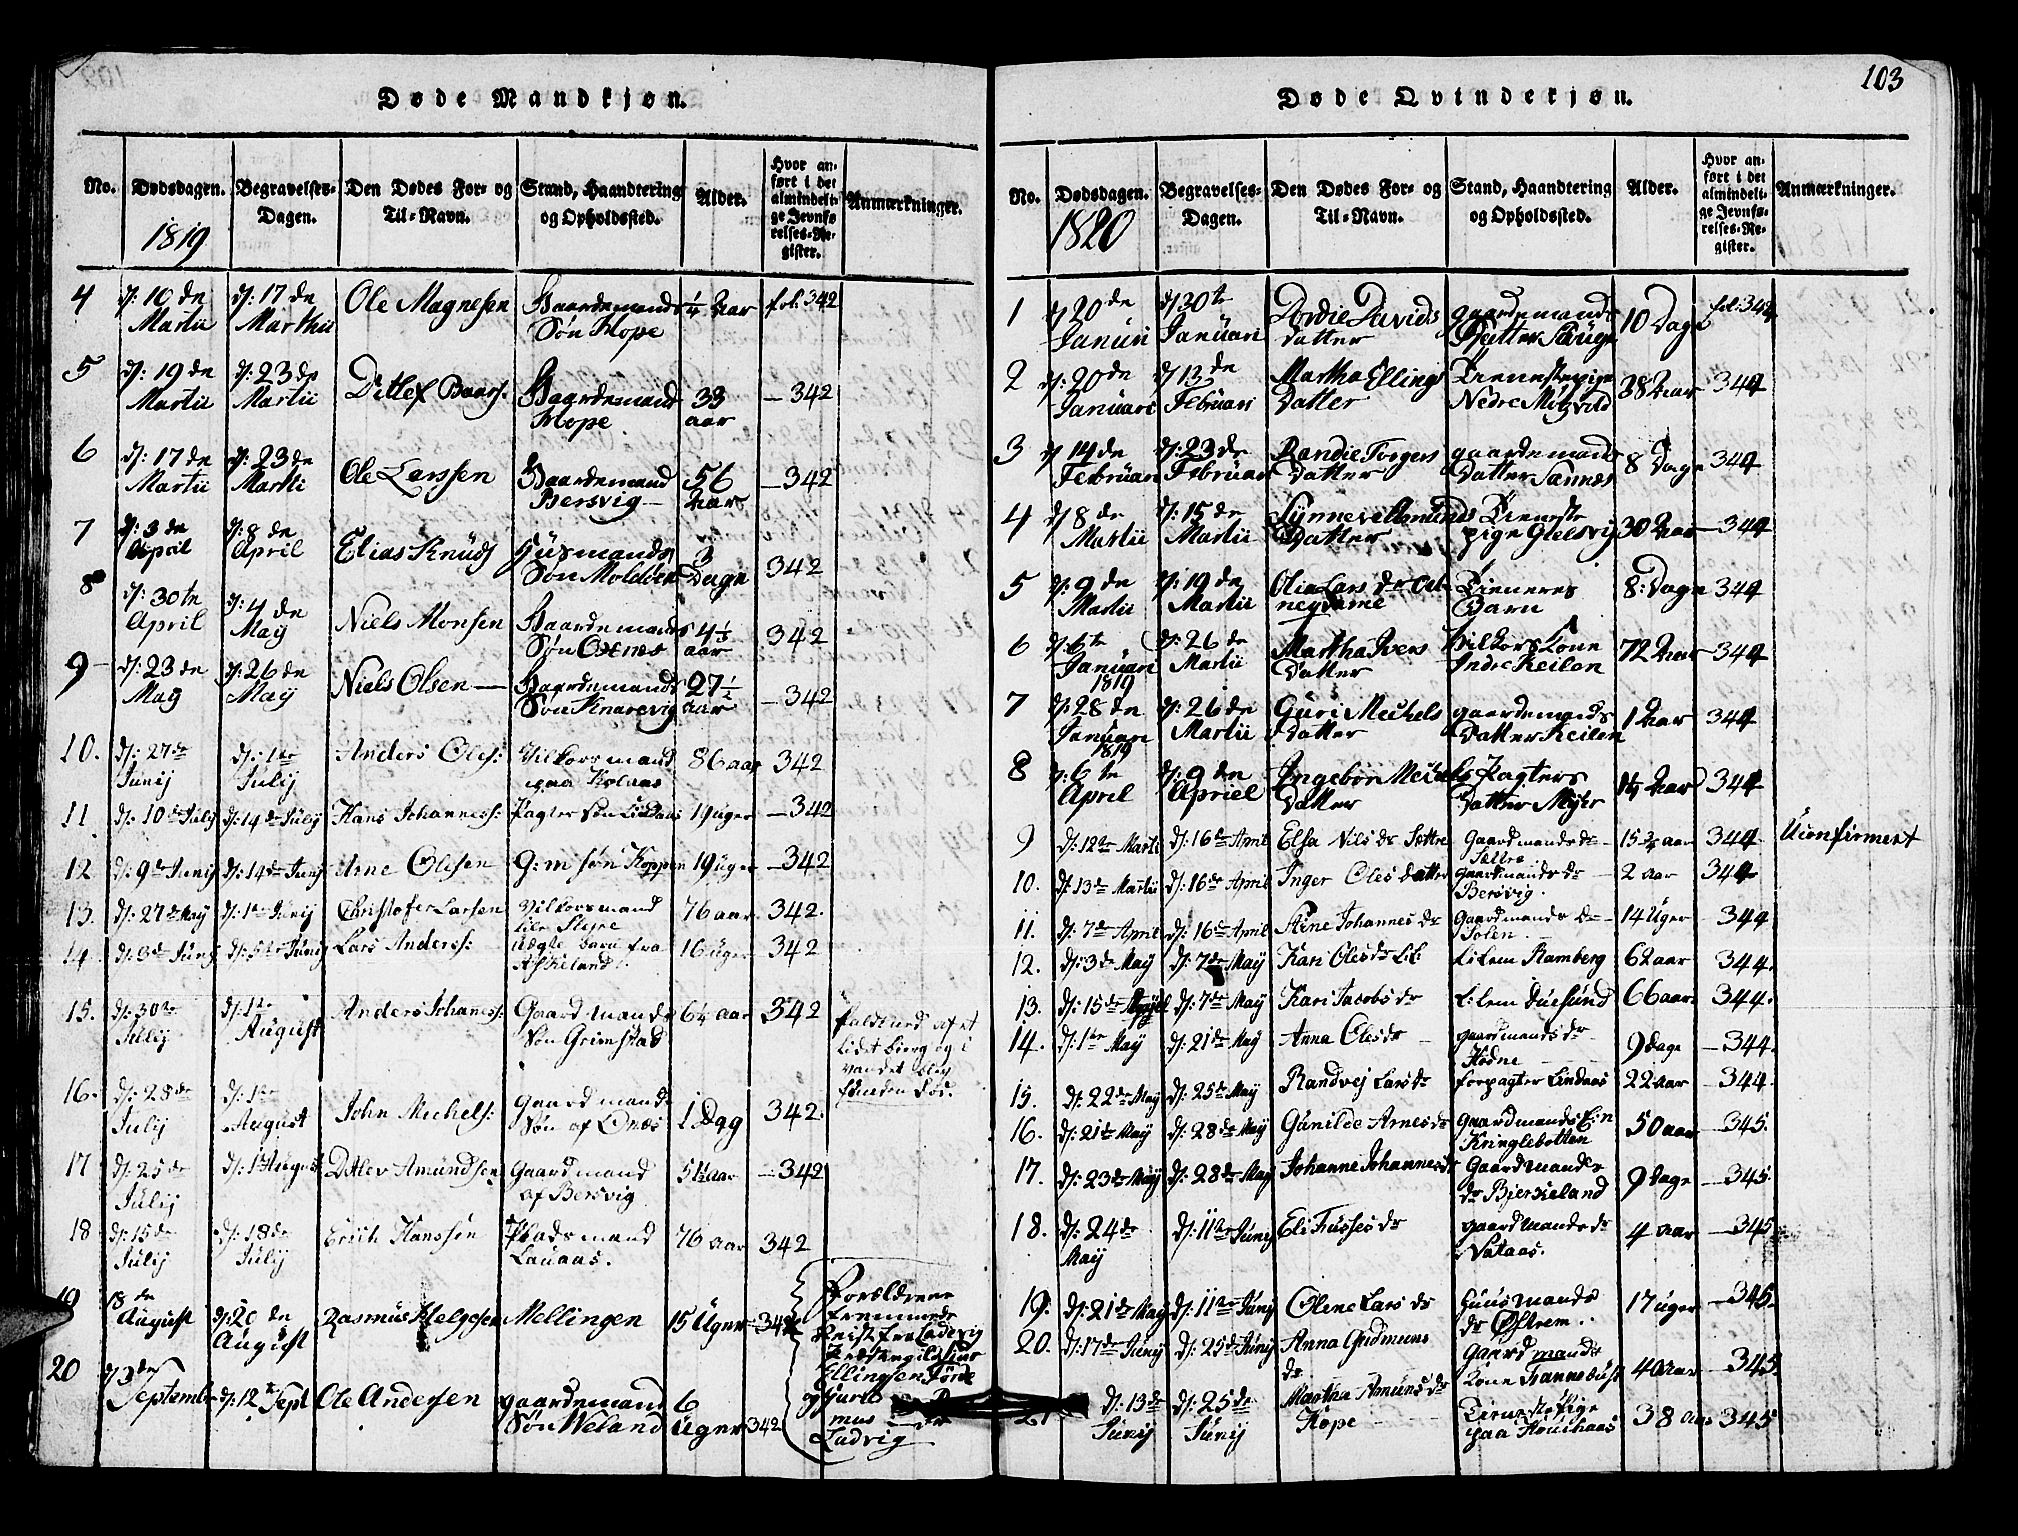 103
Døde Mandkjøn.
No. Dødsdagen. Begravelses-Dagen. Den Dødes For- og Til-Navn. Stand, Haandtering og Opholdssted. Alder. Hvor anført i det almindelige Jevnførelses-Register. Anmærkninger.
1819
4 d: 10 de Martii d: 17 de Marthii Ole Magnesen Gaardemands Søn Hope 1/4 Aar fol: 342
5 d: 19 de Martii d: 23 de Martii Ditlef Baars: Gaardemand Hope 33 aar – 342
6 d: 17 de Martii d: 23 de Martii Ole Larssen Gaardemand Bersvig – 56 Aar – 342
7 d: 3 de April d: 8 de April Elias Knuds Huusmands Søn Molden 3 Dage 342
8 d: 30 te April d: 4 de May Niels Monsen Gaardemands Søn Oxnæs 4 1/2 aar 342
9 d: 23 de May d: 26 de May Niels Olsen – Gaardemands Søn Knarrevig 27 1/2 aar – 342
10. d: 27 de Junij d: 1 te Julij Anders Oles: Vilkorsmand paa Kolaas 86 aar 342
11 d: 10 de Julij d: 14 de Julij Hans Johanness: Pagter Søn Lindaas 19 uger – 342
12 d: 9 de Junij d: 14 de Junij Arne Olssen G: m søn Koppen 19 uger – 342
13. d: 27 de May d: 1 te Junij Christofer Larsen Vilkorsmand 76 aar 342.
14. d: 3 de Junij d: 5 te Junij Lars Anderss: Uægte barn fra Askeland 16 uger 342
15. d: 30 te Julij d: 1 te August Anders Johaness: Gaardmands Søn Grimstad 6 1/4 aar 342 faldt ned af et lidet bierg og i vandet blev funden død.
16. d: 28 de Julij d: 1 te August John Michels: Gaardmands Søn af Onæs 1 Dag 342.
17 d: 25 de Julij d: 1 te August Detlev Amundsen Gaardmand af Bersvig 51 1/2 aar – 342
18 d: 15 de Julij d: 18 de Julij Erich Hanssen Pladsmand Lauaas. 76 aar 342
19 18 de August d: 20 de August Rasmus Helgesen Mellingen 15 Uger – 342 Forældrene fremmede Reist fra Ladevig Ellingsen Ladvig
20 d 3 de Septembr d: 12 te Sept Ole Andersen gaardemand Søn Weland 6 Uger 342
Døde Qvindekjøn.
No. Dødsdagen. Begravelses-Dagen. Den Dødes For- og Til-Navn. Stand, Haandtering og Opholdssted. Alder. Hvor anført i det almindelige Jevnførelses-Register. Anmærkninger.
1820
1 d 20 de Januari d 30 te Januari Dordie Davids Datter gaardemands Datter Touge 10 Dage fol: 344
2 d: 20 de Januari d 13 de Februari Martha Ellings Datter Tienestepige Nedre Motzvold 38 Aar 344
3 d 14 de Februari d: 23 de Februari Randie Torgers Datter gaardemands Datter Sannæs 8 Dage 344
4 d 8 de Martii d: 15 de Martii Synneve Amunds Datter Tieneste pige Gielsvig 30 Aar – 344
5 d: 9 de Martii d: 19 de Martii Olia Lars dr Tieneres Barn 8: Dage 344
6 d 6 te Januari 1819 d: 26 de Martii Martha Ivers Datter Vilkors Kone Indre Keilen 72 Aar – 344
7 d: 28 de Januari 1819 d: 26 de Martii Guri Michels Datter gaardemands Datter Keilen 1 Aar 344
8 d: 6 te April d: 9 de Apriel Ingebor Michels Datter Pagters Datter Myhr 14 Aar 344
9 d: 12 te Martii d: 16 de April Elsa Nils dr Sættre Gaardmands dr – Sættre 15 3/4 aar 344 Uconfirmert
10. d: 13 de Martii d: 16 de April Inger Oles datter gaardmands dr – Bersvig. 2 aar 344
11. d: 7 de April d: 16 de April Arne Johannes dr Gaardmands dr – Solen. 14 Uger 344
12. d: 3 de May d: 7 de May Kari Oles dr L:l: L: Lem Ramberg 62 aar 344.
13. d: 15 de d: 7 de May Kari Jacobs dr L: lem Duesund 66 aar 344.
14. d: 1 te May d: 21 de May Anna Oles dr – gaardmands dr – Hodne – 9 dage – 344.
15. d: 22 de May d: 25 de May Randvej Lars dr forpagter Lindaas 22 aar – 344
16. d: 21 te May d: 28 de May Gunilde Arnes dr Gaardmands Kringlebotten 50 aar – 345.
17. d: 23 de May d: 28 de May Johanne Johannes dr Gaardmands dr Bierkeland 9 dage – 345.
18. d: 24 de May d: 11 te Junij Eli Fusses dr gaardmands dr Vataas. 4 aar – 345
19. d: 21 de May d: 11 te Junij Olene Lars dr huusmands dr Østrem. 17 uger – 345.
20. d: 17 de Junij d: 25 de Junij Anna Gudmuns dr Gaardmands Kone Fannebust 40 aar – 345.
21 d: 13 de Junij d: 25 de Junij Martha Amuns dr Hope – Tienestepige paa 38 aar 345.